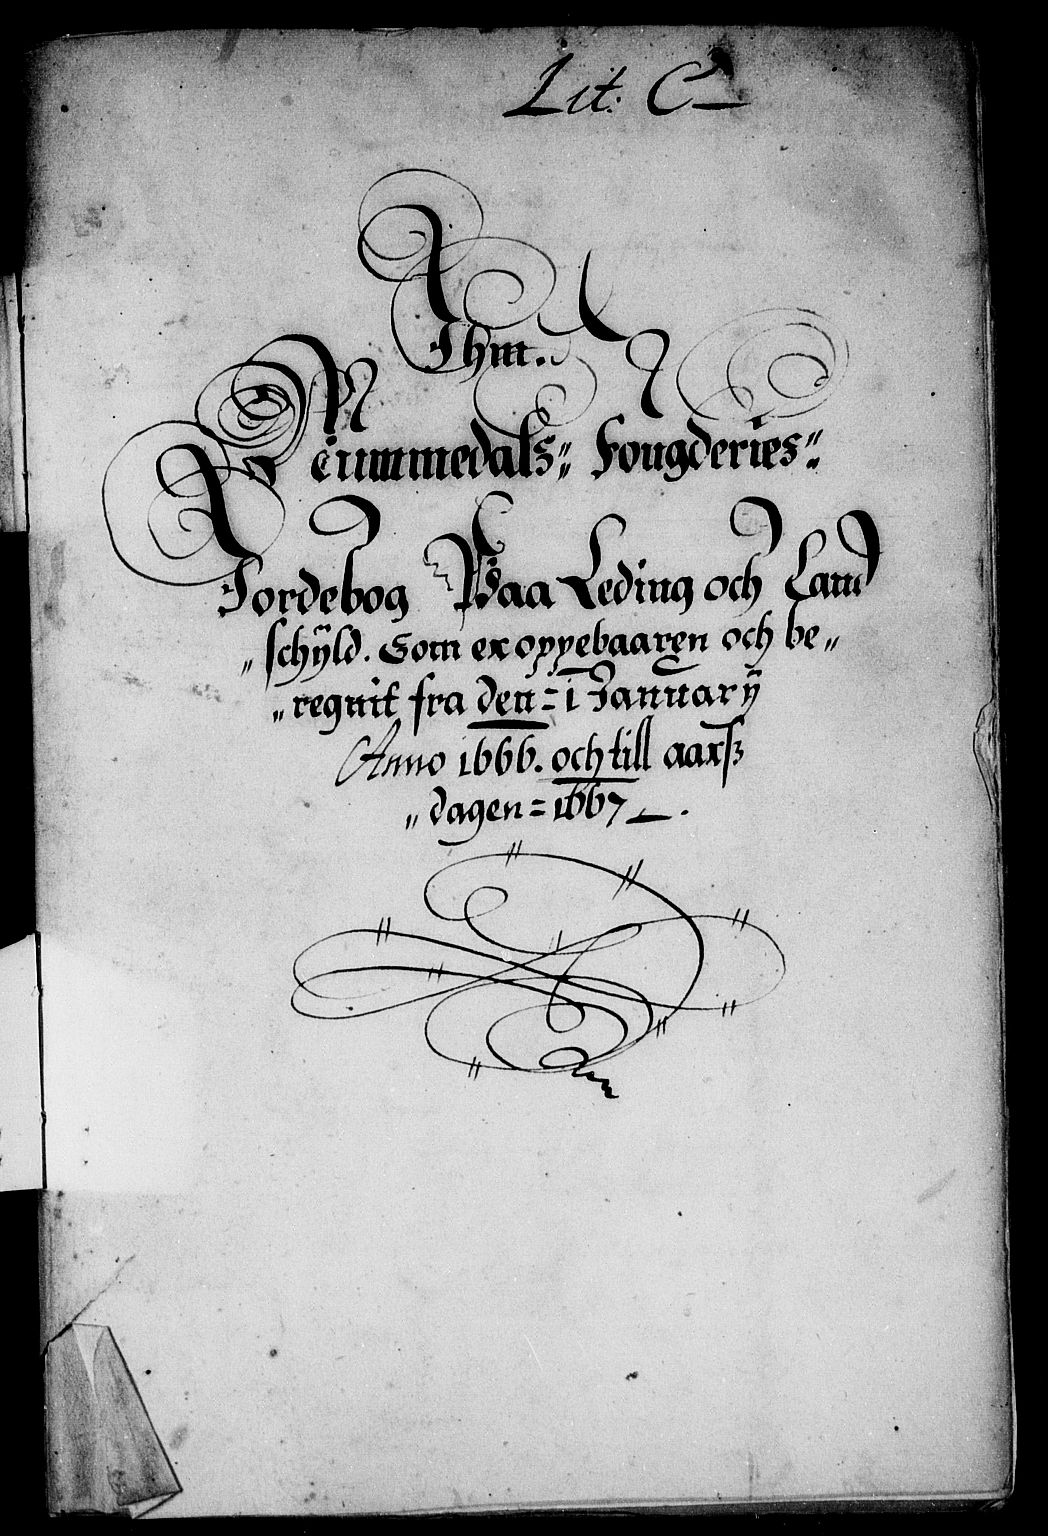 Lit: C
Ihm.
Nummedals: Fougderies:
Jordebog Paa Leding och Land
schÿld. Som er oppebaaren och be
regnit fra den 1 Januarÿ
Anno 1666. och till aars
dagen 1667